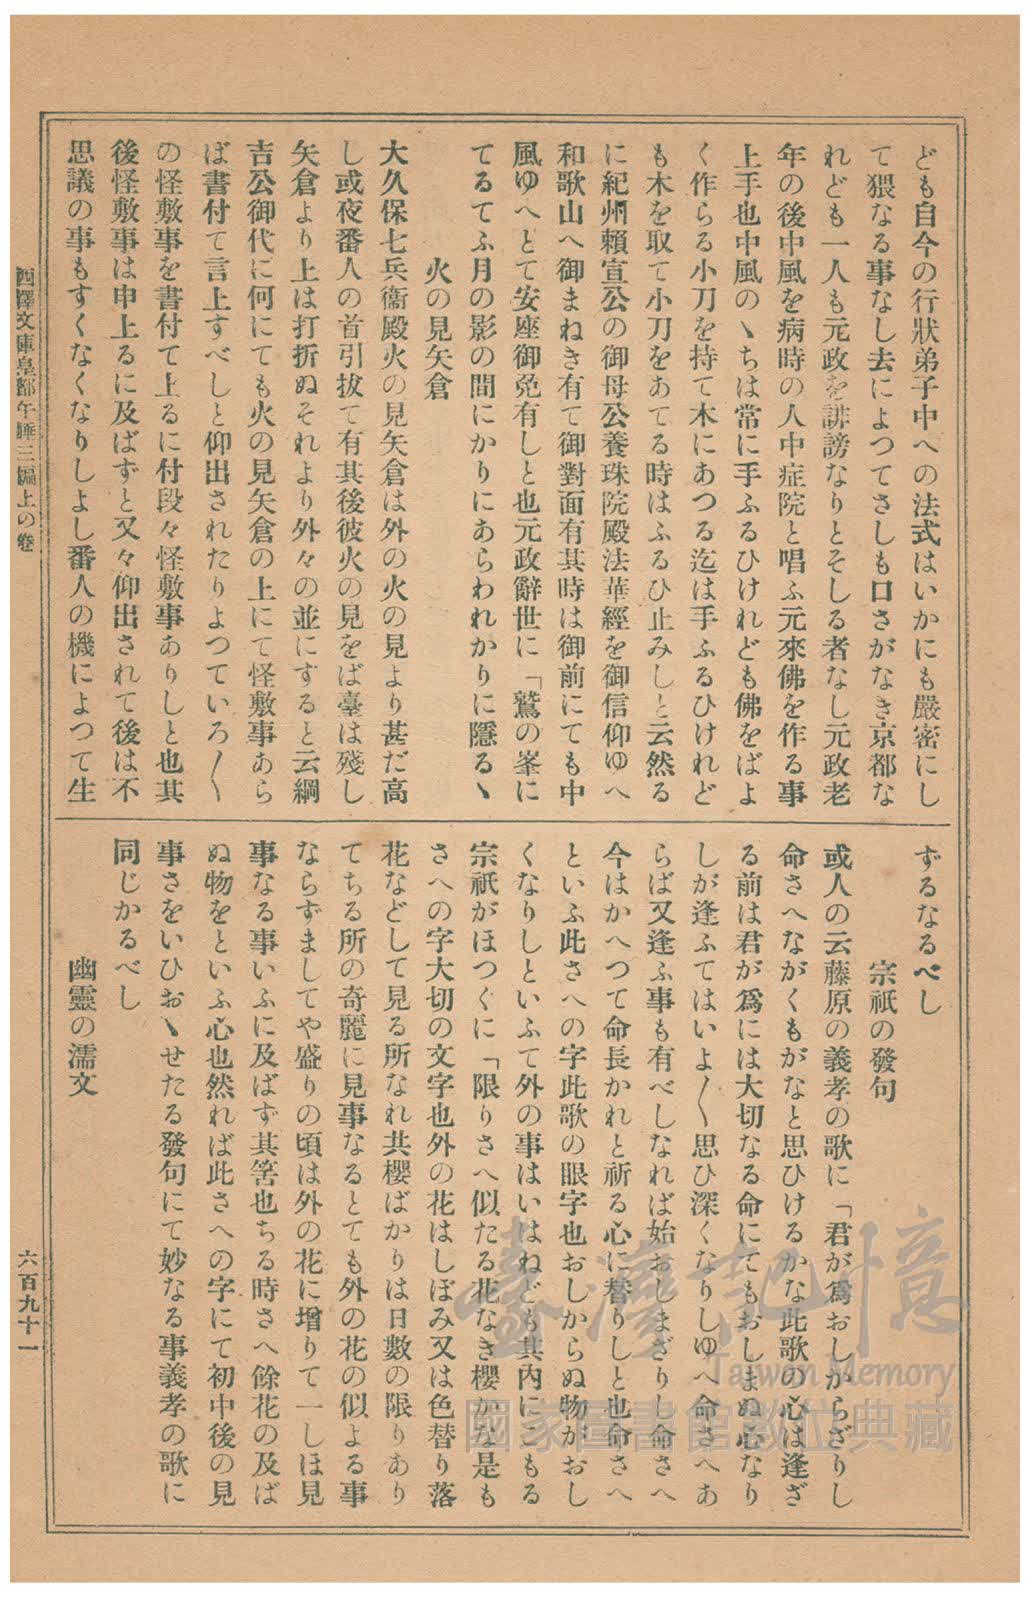 ども自今の行狀弟子中への法式はいかにも嚴密にし
て猥なる事なし去によつてさしも口さがなき京都な
れども一人も元政を誹謗なりとそしる者なし元政老
年の後中風を病時の人中症院と唱ふ元來佛を作る事
上手也中風のゝちは常に手ふるひけれども佛をばよ
く作らる小刀を持て木にあつる迄は手ふるひけれど
も木を取て小刀をあてる時はふるひ止みしと云然る
に紀州賴宣公の御母公養珠院殿法華經を御信仰ゆへ
和歌山へ御まねき有て御對面有其時は御前にても中
風ゆへとて安座御免有しと也元政辭世に「鷲の峯に
てるてふ月の影の間にかりにあらわれかりに隱るゝ
火の見矢倉
大久保七兵衞殿火の見矢倉は外の火の見より甚だ高
し或夜番人の首引拔て有其後彼火の見をば臺は殘し
矢倉より上は打折ぬそれより外々の並にすると云綱
吉公御代に何にても火の見矢倉の上にて怪敷事あら
ば書付て言上すべしと仰出されたりよつていろ〱
の怪敷事を書付て上るに付段々怪敷事ありしと也其
後怪敷事は申上るに及ばずと又々仰出されて後は不
思議の事もすくなくなりしよし番人の機によつて生
ずるなるべし
宗祇の發句
或人の云藤原の義孝の歌に「君が爲おしからざりし
命さへながくもがなと思ひけるかな此歌の心は逢ざ
る前は君が爲には大切なる命にてもおしまぬ心なり
しが逢ふてはいよ〱思ひ深くなりしゆへ命さへあ
らば又逢ふ事も有べしなれば始おしまざりし命さへ
今はかへつて命長かれと祈る心に替りしと也命さへ
といふ此さへの字此歌の眼字也おしからぬ物がおし
くなりしといふて外の事はいはねども其內にこもる
宗祇がほつくに「限りさへ似たる花なき櫻かな是も
さへの字大切の文字也外の花はしぼみ又は色替り落
花などして見る所なれ共櫻ばかりは日數の限りあり
てちる所の奇麗に見事なるとても外の花の似よる事
ならずましてや盛りの頃は外の花に增りて一しほ見
事なる事いふに及ばず其筈也ちる時さへ餘花の及ば
ぬ物をといふ心也然れば此さへの字にて初中後の見
事さをいひおゝせたる發句にて妙なる事義孝の歌に
同じかるべし
幽靈の濡文
西澤文庫皇都午睡三編上の卷
六百九十一
臺灣記憶
Taiwan Memory
國家圖書館數位典藏